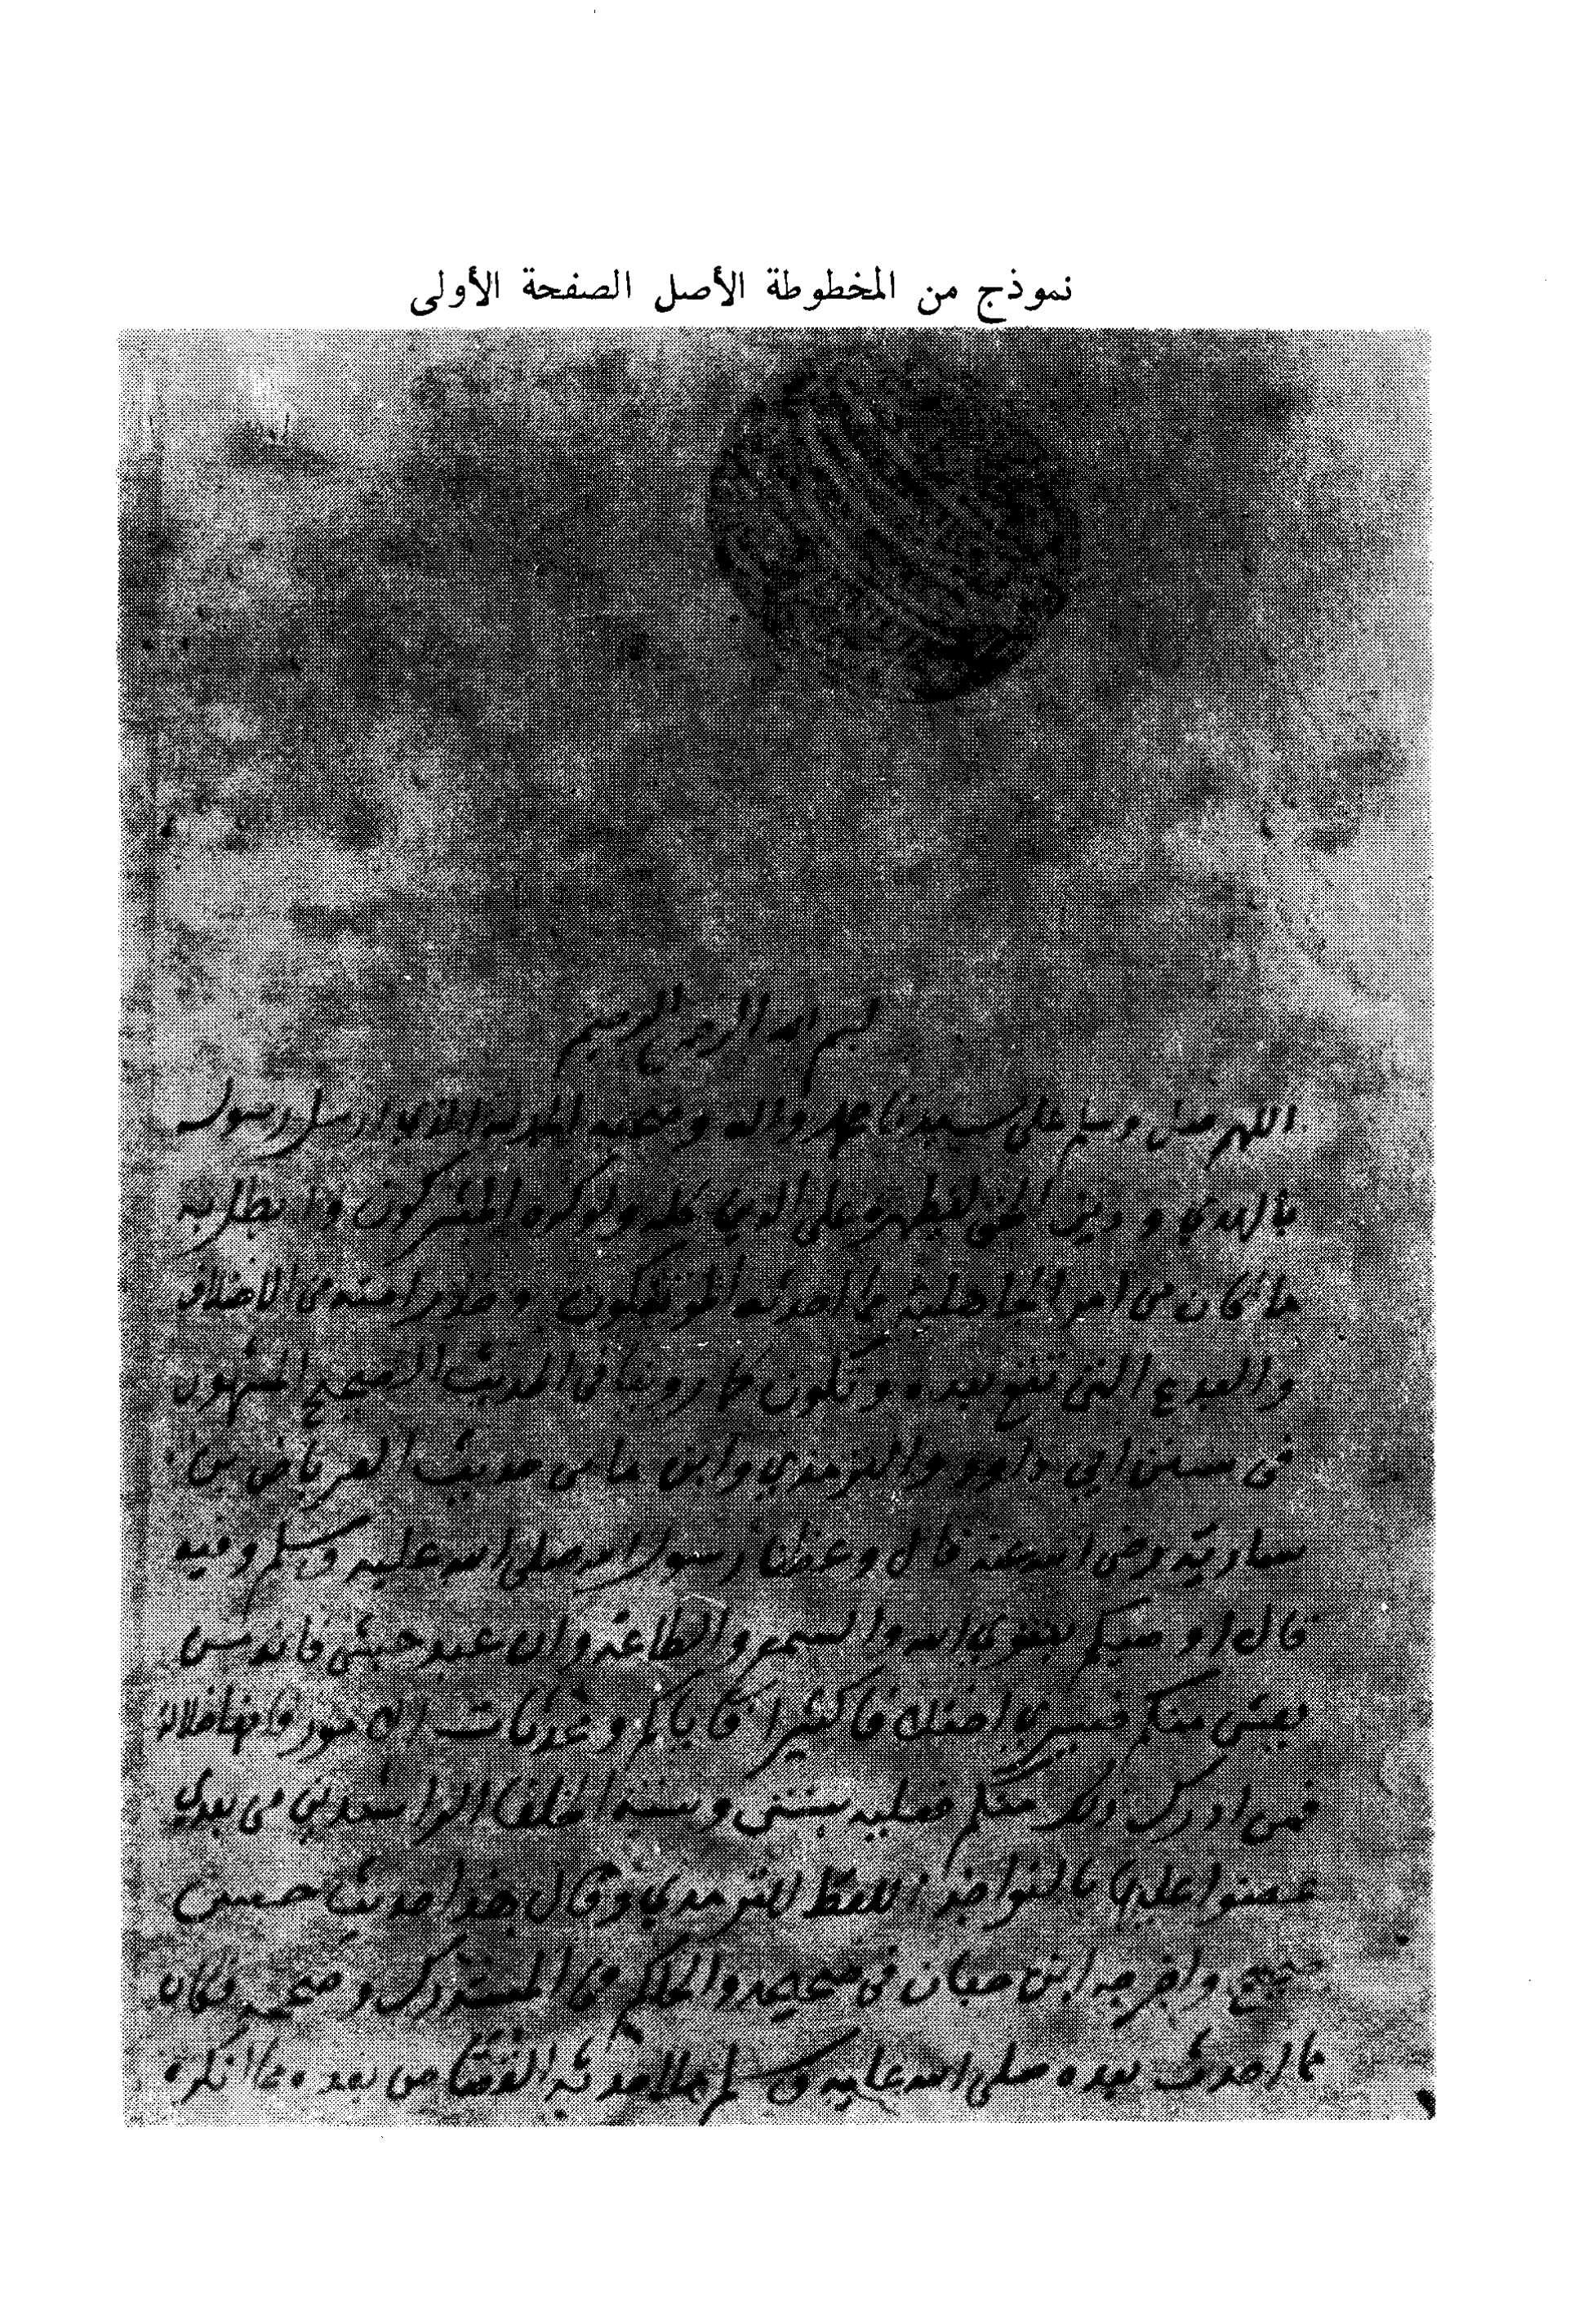 نموذج من المخطوطة الأصل الصفحة الأولى
بسم الله الرحمن الرحيم
اللهم صل وسلم على سيدنا محمد واله وصحبه الحمد لله الذي ارسل رسوله
بالهدي ودين الحق ليظهره على الدين كله ولوكره المشركون وابطل به
ما كان من امر الجاهلية مما احدثه المؤتفكون وحذر امته من الاختلاف
والبدع التي تقع بعده وتكون كما روينا في الحديث الصحيح المشهور
في سنن ابي داود والترمذي وابن ماجه حديث العرباض بن
سارية رضي الله عنه قال وعظنا رسول الله صلى الله عليه وسلم وفيه
قال اوصيكم بتقوي الله والسمع والطاعة وان عبد حبشي فانه من
يعش منكم فسيري اختلافا كثيرا فاياكم ومحدثات الامور فانها ضلالة
فمن ادرك ذلك منكم فعليه بسنتي وسنة الخلفا الراشدين من بعدي
عضوا عليها بالنواجذ اللفظ للترمذي وقال هذا حديث حسن
صحيح واخرجه ابن حبان في صحيحه والحاكم في المستدرك وصححه فكان
مما احدث بعده صلى الله عليه وسلم من بعده مما انكره